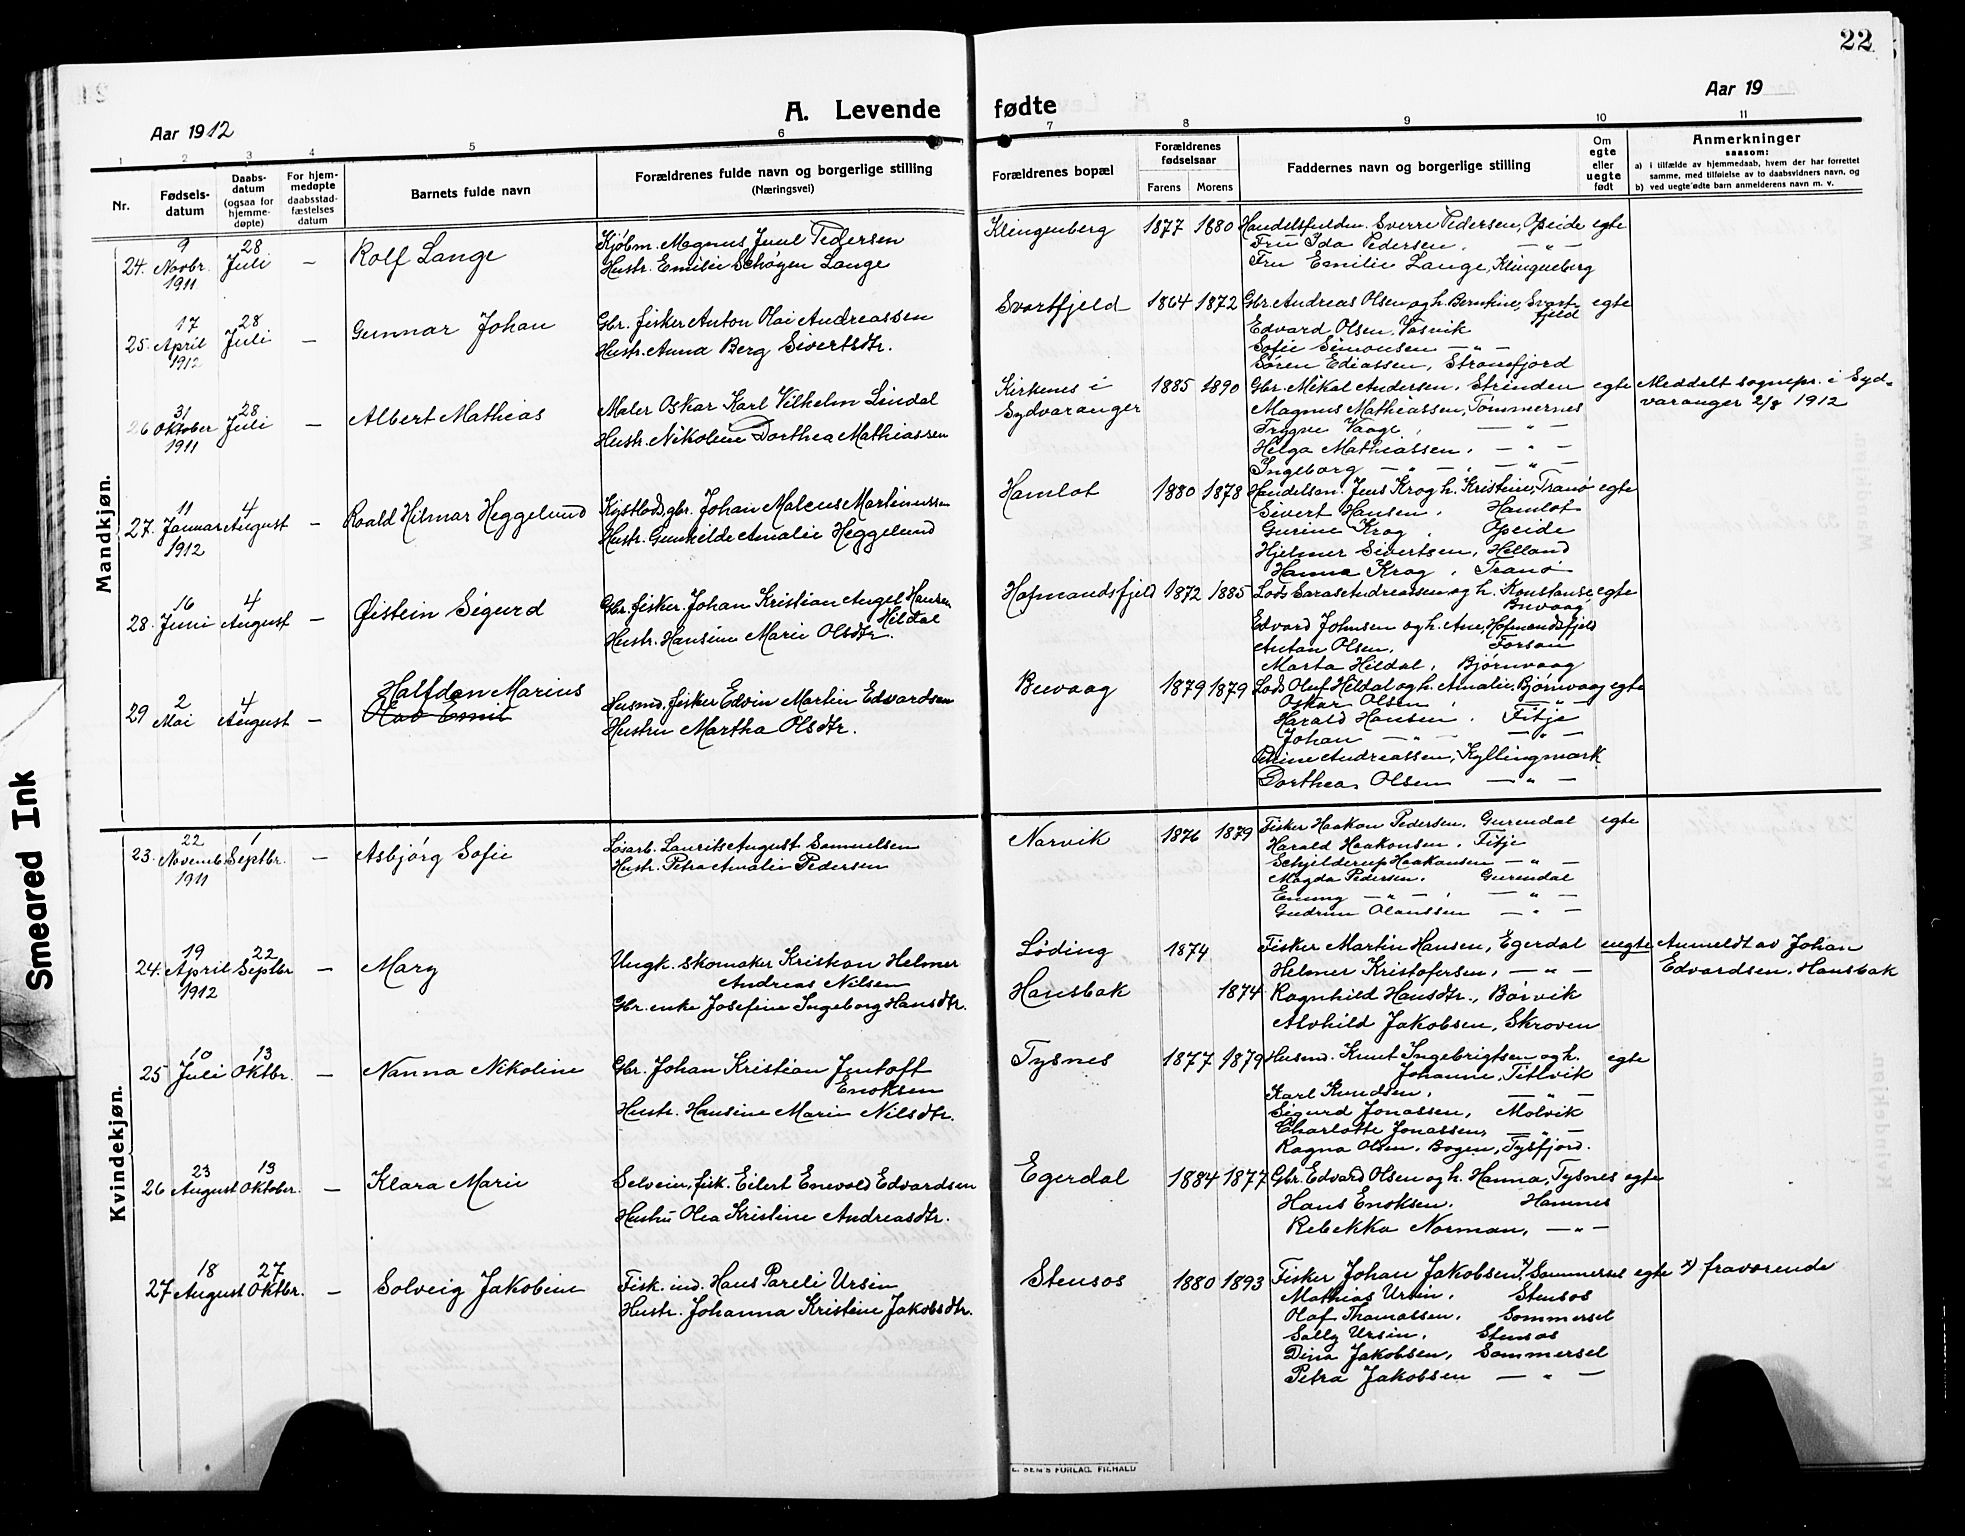 22
A. Levende fødte
Aar 1912
Aar 19
1 2 3 4 5 6 7 8 9 10 11
Nr.
Fødsels-
datum
Daabs-
datum
(ogsaa for
hjemme-
døpte)
For hjem-
medøpte
daabsstad-
fæstelses
datum
Barnets fulde navn
Forældrenes fulde navn og borgerlige stilling
(Næringsvei)
Forældrenes bopæl
Forældrenes
fødselsaar
Farens Morens
Faddernes navn og borgerlige stilling
Om
egte
eller
uegte
født
Anmerkninger
saasom:
a) i tilfælde av hjemmedaab, hvem der har forrettet
samme, med tilføielse av to daabsvidners navn, og
b) ved uegte fødte barn anmelderens navn m. v.
Mandkjøn.
24. 9 Novbr. 1911 28 Juli — Rolf Lange
Kjøbm. Magnus Juul Pedersen
Hustr. Emilie Schøyen Lange
Klingenberg 1877 1880
Handelsfuldm. Sverre Pedersen, Opeide egte
Fru Ida Pedersen. — " —
Fru Emilie Lange, Klingenberg
25. 17 April 1912 28 Juli — Gunnar Johan
Gbr. fisker Anton Olai Andreassen
Hustr. Anna Berg Sivertsdtr.
Svartfjeld 1864 1872
Gbr. Andreas Olsen og h. Berntine, Svart-
fjeld egte
Edvard Olsen. Vasvik
Sofie Simonsen — " —
Søren Ediassen, Stranefjord
26 31 Oktober 1911 28 Juli — Albert Mathias
Maler Oskar Karl Vilhelm Lindal
Hustr. Nikoline Dorthea Mathiassen
Kirkenes i
Sydvaranger 1885 1890
Gbr. Mikal Andersen. Strinden egte
Magnus Mathiassen, Tømmernes
Trygve Vaage, — " —
Helga Mathiassen. — " —
Ingeborg — " — , — " —
Meddelt sognepr. i Syd-
varanger 2/8 1912
27. 11 Januar 1912 4 August — Roald Hilmar Heggelund
Kystlods, gbr. Johan Malcus Martinussen
Hustr. Gunhilde Amalie Heggelund
Hamlot 1880 1878
Handelsm. Jens Krog h. Kristine, Tranø egte
Sivert Hansen, Hamlot
Gurine Krog, Opeide
Hjelmer Sivertsen, Helland
Hanna Krog, Tranø
28. 16 Juni 4 August — Øistein Sigurd
Gbr. fisker. Johan Kristian Angel Hansen
Hildal
Hustr. Hansine Marie Olsdtr.
Hofmandsfjeld 1872 1885
Lods Saras Andreassen og h. Konstanse egte
Buvaag
Edvard Johnsen og h. Ane, Hofmandsfjeld
Anton Olsen. Forsan
Marta Hildal, Bjørnvaag
29 2 Mai 4 August — Halfdan Marius
Olav Emil
Husmd. fisker Edvin Martin Edvardsen
Hustru Martha Olsdtr.
Buvaag 1879 1879
Lods Oluf Hildal og h. Amalie, Bjørnvaag egte
Oskar Olsen, — " —
Harald Hansen, Fitje
Johan — " — — " —
Petrine Andreassen, Kyllingmark
Dorthea Olsen — " —
Kvindekjøn.
23. 22 Novemb. 1911 1 Septbr. — Asbjørg Sofie
Løsarb. Laurits August Samuelsen
Hustr. Petra Amalie Pedersen
Narvik 1876 1879
Fisker Haakon Pedersen, Gurendal egte
Harald Haakonsen, Fitje
Schjelderup Haakonsen — " —
Magda Pedersen. Gurendal
Emmy — " — , — " —
Gudrun Olaussen — " —
24. 19 April 1912 22 Septbr — Mary
Ungk. skomaker Kristian Helmer
Andreas Nilsen
Gbr. enke Josefine Ingeborg Hansdtr.
Løding 1874
Hansbak 1874
Fisker Martin Hansen, Egerdal uegte
Helmer Kristofersen, — " —
Ragnhild Hansdtr., Børvik
Alvhild Jakobsen, Skroven
Anmeldt av Johan
Edvardsen. Hansbak
25 10 Juli 13 Oktbr. — Nanna Nikoline
Gbr. Johan Kristian Jentoft
Enoksen
Hustr. Hansine Marie Nilsdtr.
Tysnes 1877 1879
Husmd. Knut Ingebrigtsen og h. egte
Johanne, Titlvik
Karl Knudsen, — " —
Sigurd Jonassen, Molvik
Charlotte Jonassen, — " —
Ragna Olsen, Bogen, Tysfjord.
26 23 August 13 Oktober. — Klara Marie
Selveier, fisk. Eilert Enevold Edvardsen
Hustru Olea Kristine Andreasdtr.
Egerdal 1884 1877
Gbr. Edvard Olsen og h. Hanna, Tysnes egte
Hans Enoksen. Hamnes
Rebekka Norman, — " —
27 18 August 27 Oktbr. — Solveig Jakobine
Fisk. ind. Hans Pareli Ursin
Hustr. Johanna Kristine Jakobsdtr.
Stensos 1880 1893
Fisker Johan Jakobsen x), Sommersel egte x) fraværende
Mathias Ursin, Stensos
Olaf Thomassen, Sommersel
Sally Ursin, Stensos
Dina Jakobsen, Sommersel
Petra Jakobsen — " —
E. SEM'S FORLAG, F.HALD
Smeared Ink